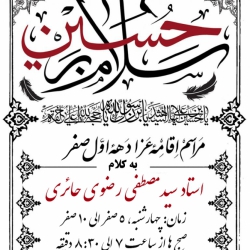 سلام بر حسین
مراسم اقامه عزا دهه اول صفر
به کلام
استاد سید مصطفی رضوی حائری
زمان: چهارشنبه، ۵ صفر الی ۱۰ صفر
صبح ها از ساعت ۷ الی ۸:۳۰ دقیقه